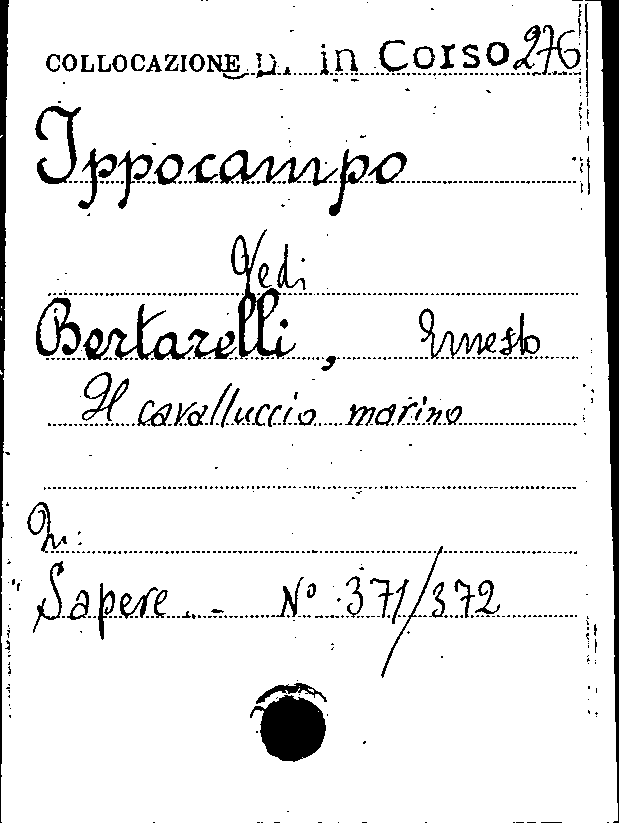 COLLOCAZIONE D. in Corso 276
Ippocampo
Vedi
Bertarelli, Ernesto
Il cavalluccio marino
In:
Sapere. - N° 371/372